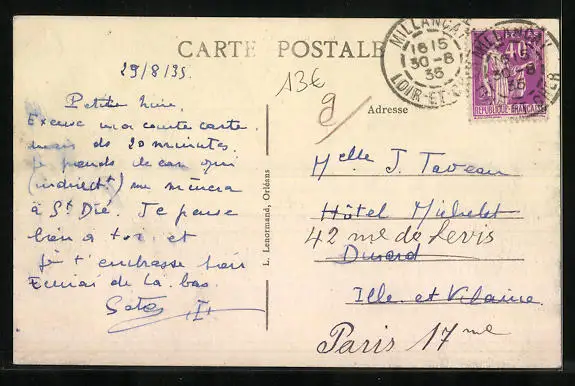 CARTE POSTALE
29/8/35
13€
Petite
Excuse ma courte carte
mais ds 20 minutes
je prends le car qui
(indirectt) me mènera
à St Dié. Je pense
bien à toi et
je t'embrasse
de là-bas.
Adresse
L. Lenormand, Orléans
Melle J. Taveau
Hôtel Michelet
42 rue de Levis
Dinard
Ille et Vilaine
Paris 17me
MILLANÇAY
16 15
30-8
35
LOIR-ET-CHER
POSTES
40c
REPUBLIQUE FRANÇAISE